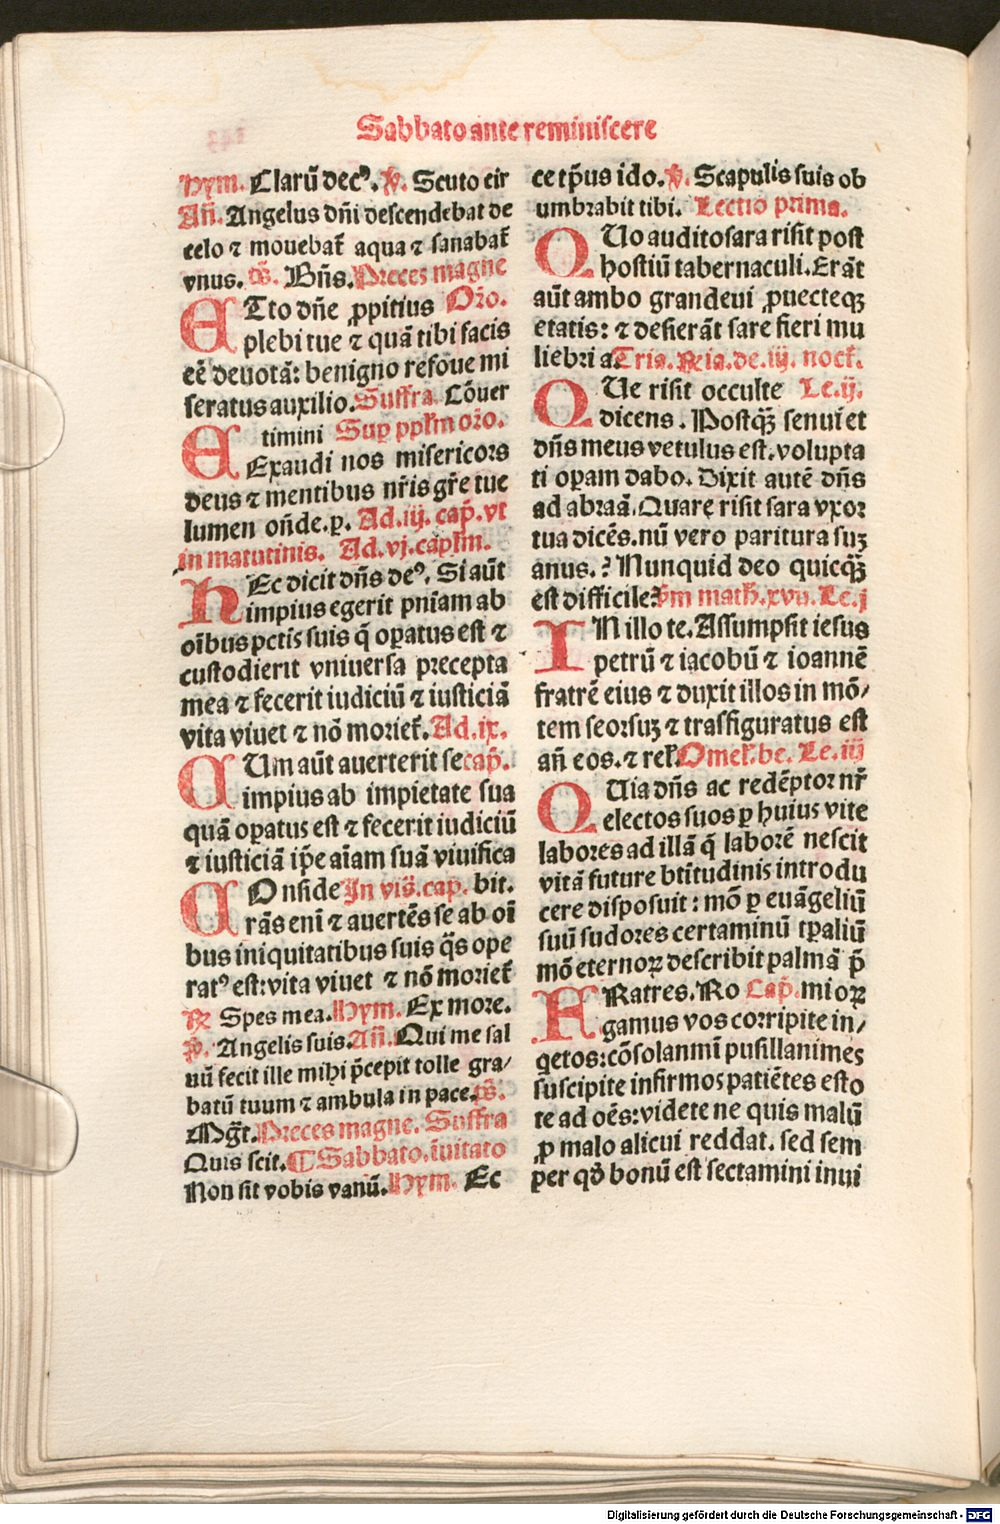 Sabbato ante reminiscere
Hym. Clarū decꝰ. ℣. Scuto cir
Añ. Angelus dñi descendebat de
celo ⁊ mouebat̄ aqua ⁊ sanabat̄
vnus. p̄s. Bñs. Preces magne
ETto dñe ꝓpitius Orō.
plebi tue ⁊ quā tibi facis
eē deuotā: benigno refoue mi
seratus auxilio. Suffra. Cōuer
timini Suꝑ pplm̄ orō.
EExaudi nos misericors
deus ⁊ mentibus nr̄is gr̄e tue
lumen oñde. ꝑ. Ad. iij. cap̄. vt
in matutinis. Ad. vj. caplm̄.
HEc dicit dñs deꝰ. Si aūt
impius egerit pniam ab
oībus pctīs suis q̄ oꝑatus est ⁊
custodierit vniuersa precepta
mea ⁊ fecerit iudiciū ⁊ iusticiā
vita viuet ⁊ nō moriet̄. Ad. ix.
CUm aūt auerterit se cap̄.
impius ab impietate sua
quā oꝑatus est ⁊ fecerit iudiciū
⁊ iusticiā ip̄e aīam suā viuifica
COnside In vis̄. cap. bit.
rās enī ⁊ auertēs se ab oī
bus iniquitatibus suis q̄s ope
ratꝰ est: vita viuet ⁊ nō moriet̄
℟ Spes mea. Hym. Ex more.
℣. Angelis suis. Añ. Qui me sal
uū fecit ille mihi p̄cepit tolle gra/
batū tuum ⁊ ambula in pace. p̄s.
Mgt̄. Preces magne. Suffra
Quis scit. ¶ Sabbato. īuitato
Non sit vobis vanū. Hym. Ec
ce tp̄us ido. ℣. Scapulis suis ob
umbrabit tibi. Lectio prima.
QUo audito sara risit post
hostiū tabernaculi. Erāt
aūt ambo grandeui ꝓuecteqꝫ
etatis: ⁊ desierāt sare fieri mu
liebria. Tria. ℟ia. de. iij. noct̄.
QUe risit occulte Le. ij.
dicens. Postqꝫ senui et
dñs meus vetulus est. volupta
ti oꝑam dabo. Dixit autē dñs
ad abraā. Quare risit sara vxor
tua dicēs. nū vero paritura suꝫ
anus.? Nunquid deo quicqꝫ
est difficile? s̄m math̄. xvii. Le. j
IN illo te. Assumpsit iesus
petrū ⁊ iacobū ⁊ ioannē
fratrē eius ⁊ duxit illos in mō/
tem seorsuꝫ ⁊ trāsfiguratus est
añ eos. ⁊ rel̄. Omel̄. be. Le. iij
QUia dñs ac redēptor nr̄
electos suos ꝑ huius vite
labores ad illā q̄ laborē nescit
vitā future btītudinis introdu
cere disposuit: mō ꝑ euāgeliū
suū sudores certaminū tꝑaliū
mō eternoꝝ describit palmā p̄
FRatres. Ro Cap̄. mioꝝ
gamus vos corripite in/
qetos: cōsolanmī pusillanimes
suscipite infirmos patiētes esto
te ad oēs: videte ne quis malū
ꝓ malo alicui reddat. sed sem
per qđ bonū est sectamini inui
Digitalisierung gefördert durch die Deutsche Forschungsgemeinschaft - DFG